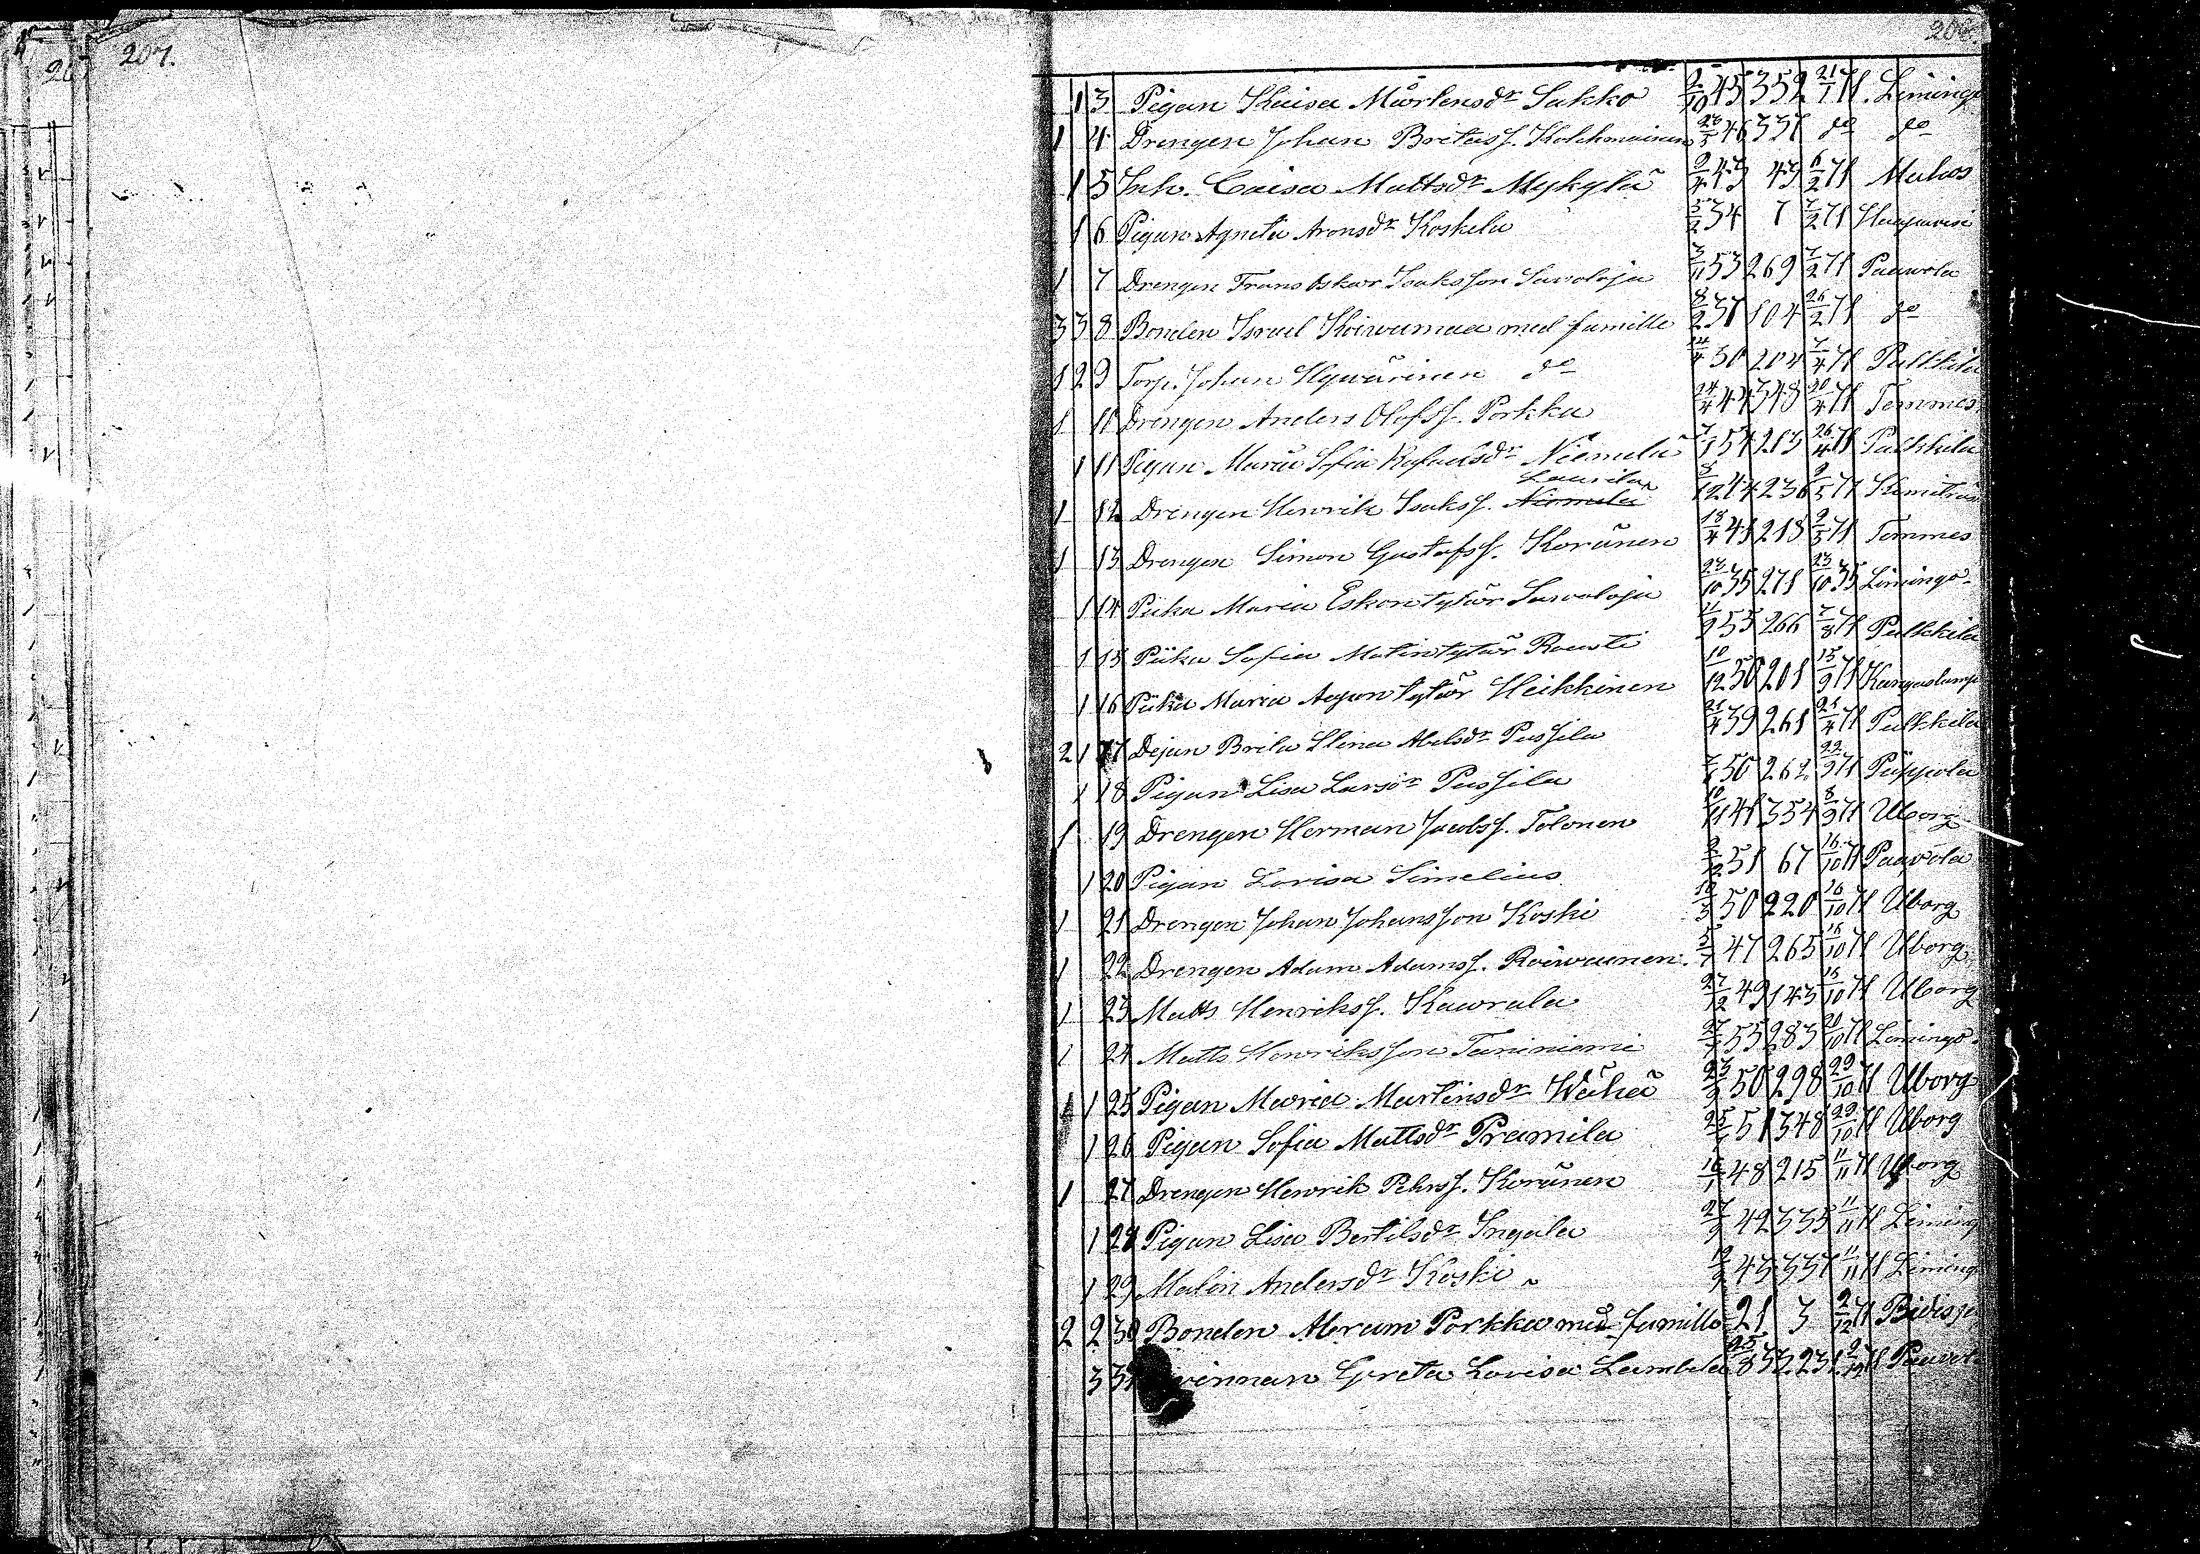 207.
208.
1 3 Pigan Kaisa Mårtensdr Sakko 2/10 45 352 21/1 71. Liminga
1 4 Drengen Johan Britass. Kolehmainen 46 337 do do
1 5 Inh. Caisa Mattsdr Mykylä 2/4 43 43 6/2 71 Muhos
1 6 Pigan Agneta Aronsdr Koskela 3/2 34 7 7/2 71 Haapavesi
1 7 Drengen Frans Oskar Isaksson Savoloja 3/11 53 269 7/2 71 Paavola
3 3 8 Bonden Israel Koivumaa med familie 8/2 37 104 26/2 71 do
1 2 9 Torp. Johan Hyvärinen do 14/4 30 204 7/4 71 Pulkkila
1 10 Drengen Anders Olofss. Porkka 24/4 44 348 20/4 71 Temmes
1 11 Pigan Maria Sofia Rafaelsdr Niemelä 7/1 54 213 26/4 71 Pulkkila
Laurila
1 12 Drengen Henrik Isakss. Niemelä 8/12 44 236 9/5 71 Kemiträsk
1 13 Drengen Simon Gustafss. Koränen 18/4 41 218 9/5 71 Temmes
1 14 Piika Maria Eskontytär Savoloja 23/10 35 271 23/10 35 Limingo
1 15 Piika Sofia Matintytär Rousti 11/9 55 266 7/8 71 Pulkkila
1 16 Piika Maria Aapontytär Heikkinen 10/12 50 201 15/9 71 Kangaslampi
2 1 17 Dejan Brita Stina Abelsdr Passila 21/4 39 261 21/4 71 Pulkkila
1 18 Pigan Lisa Larsdr Passila 50 262 22/9 71 Piippola
1 19 Drengen Herman Jacobss. Tolonen 10/11 41 354 8/9 71 Uborg
1 20 Pigan Lovisa Simelius 2/12 51 67 16/10 71 Paavola
1 21 Drengen Johan Johansson Koski 10/3 50 220 16/10 71 Uborg
1 22 Drengen Adam Adamss. Roivainen. 5/7 47 265 16/10 71 Uborg
1 23 Matts Henrikss. Kaurala 27/12 49 143 16/10 71 Uborg
1 24 Matts Henriksson Taniniemi 27/7 55 283 20/10 71 Limingo
1 25 Pigan Maria Martinsdr Wähä 23/9 50 298 29/10 71 Uborg
1 26 Pigan Sofia Mattsdr Pramila 51 348 29/10 71 Uborg
1 27 Drengen Henrik Pehrss. Koränen 16/1 48 215 11/11 71 Uborg
1 28 Pigan Lisa Bertilsdr Ingala 27/9 42 335 11/11 71 Liming
1 29 Malin Andersdr Koski 43 337 11/11 71 Liming
2 2 30 Bonden Abram Porkka med familie 21 3 2/12 71 Pidisj
3 31 Greta Lovisa Lambela 25/8 32 231 2/12 71 Paavol